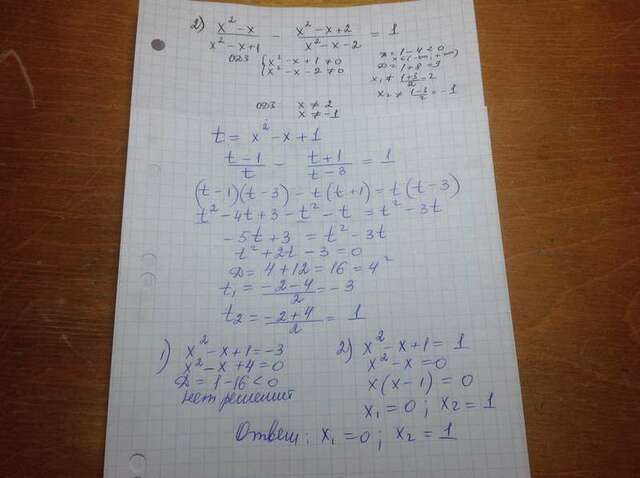 2) (x² - x)/(x² - x + 1) - (x² - x + 2)/(x² - x - 2) = 1
ОДЗ { x² - x + 1 ≠ 0
x² - x - 2 ≠ 0
D = 1 - 4 < 0
D = 1 + 8 = 9
x₁ ≠ (1+3)/2 = 2
x₂ ≠ (1-3)/2 = -1
ОДЗ x ≠ 2
x ≠ -1
t = x² - x + 1
(t - 1)/t - (t + 1)/(t - 3) = 1
(t - 1)(t - 3) - t(t + 1) = t(t - 3)
t² - 4t + 3 - t² - t = t² - 3t
-5t + 3 = t² - 3t
t² + 2t - 3 = 0
D = 4 + 12 = 16 = 4²
t₁ = (-2-4)/2 = -3
t₂ = (-2+4)/2 = 1
1) x² - x + 1 = -3
x² - x + 4 = 0
D = 1 - 16 < 0
нет решений
2) x² - x + 1 = 1
x² - x = 0
x(x - 1) = 0
x₁ = 0; x₂ = 1
Ответ: x₁ = 0; x₂ = 1